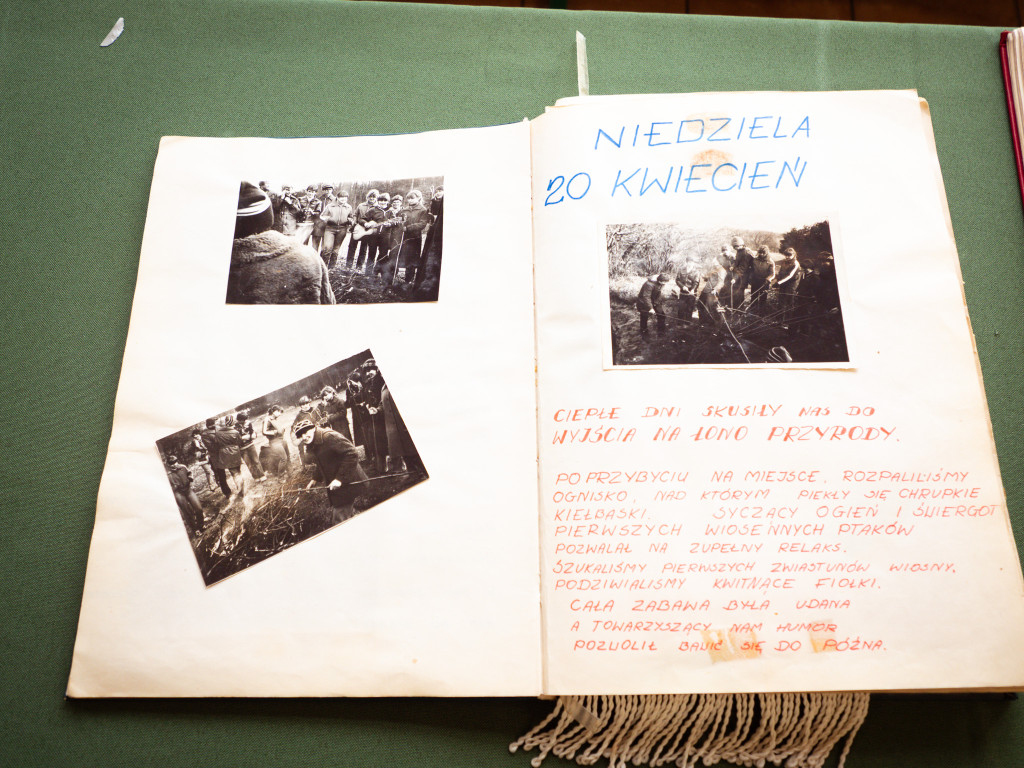 NIEDZIELA
20 KWIECIEŃ
CIEPŁE DNI SKUSIŁY NAS DO
WYJŚCIA NA ŁONO PRZYRODY.
PO PRZYBYCIU NA MIEJSCE, ROZPALILIŚMY
OGNISKO, NAD KTÓRYM PIEKŁY SIĘ CHRUPKIE
KIEŁBASKI. SYCZĄCY OGIEŃ I ŚWIERGOT
PIERWSZYCH WIOSENNYCH PTAKÓW
POZWALAŁ NA ZUPEŁNY RELAKS.
SZUKALIŚMY PIERWSZYCH ZWIASTUNÓW WIOSNY,
PODZIWIALIŚMY KWITNĄCE FIOŁKI.
CAŁA ZABAWA BYŁA UDANA
A TOWARZYSZĄCY NAM HUMOR
POZWOLIŁ BAWIĆ SIĘ DO PÓŹNA.